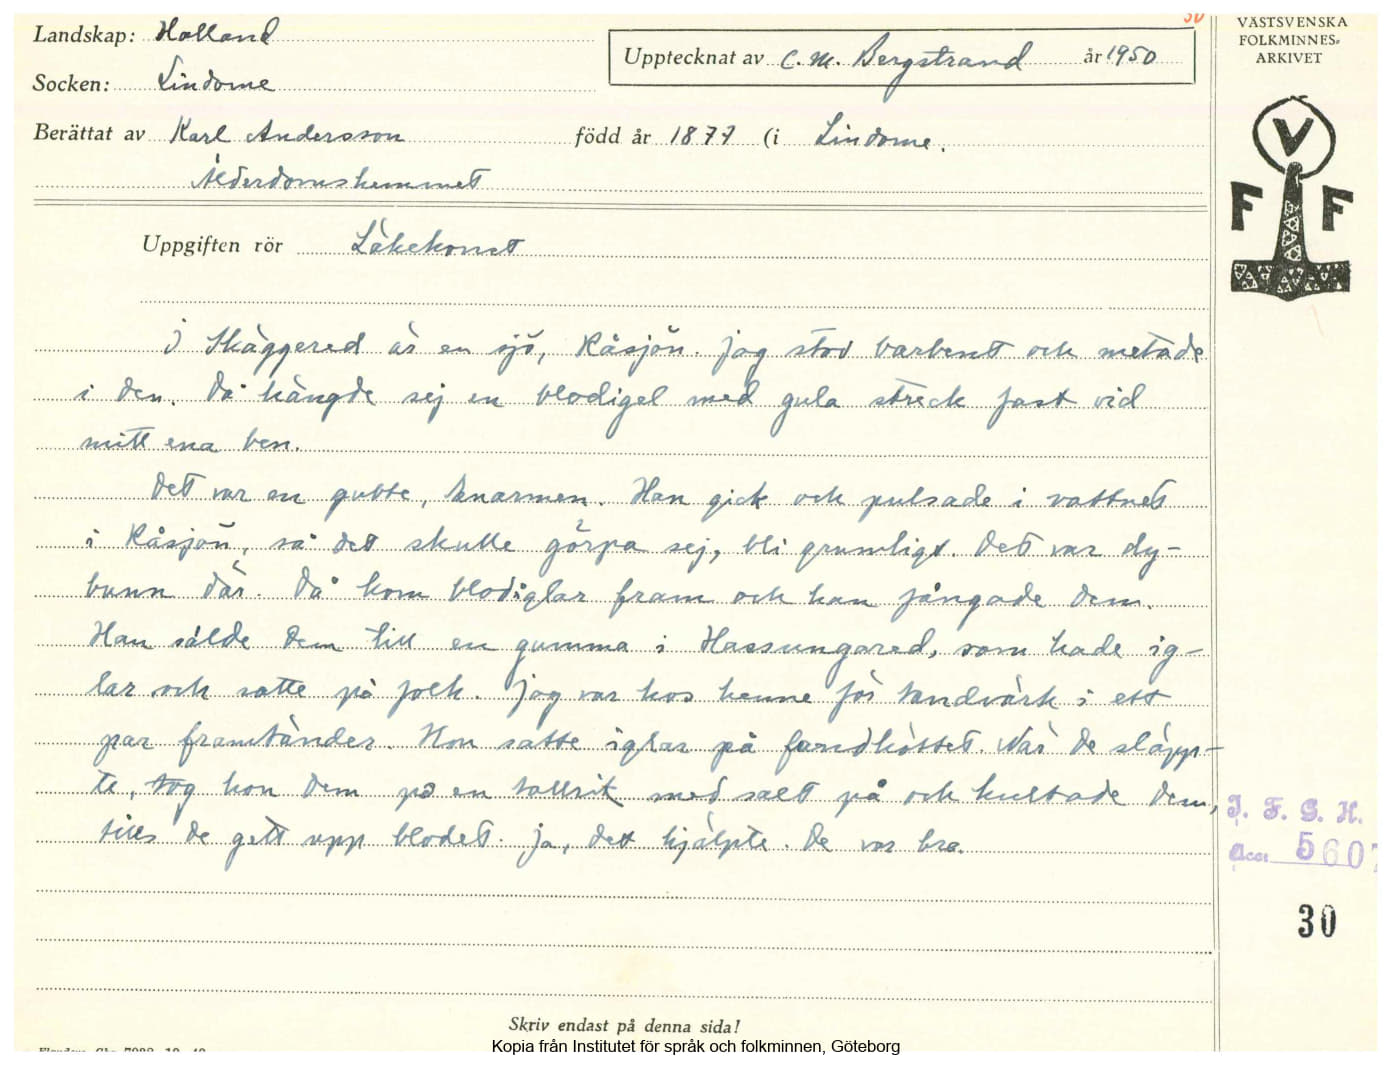 30
Landskap: Halland
Upptecknat av C. M. Bergstrand år 1950
VÄSTSVENSKA
FOLKMINNES-
ARKIVET
Socken: Lindome
Berättat av Karl Andersson född år 1877 (i Lindome.
Ålderdomshemmet
V
F F
Uppgiften rör Läkekonst
I Skäggered är en sjö, Råsjön. Jag stod barbent och metade
i den. Då hängde sej en blodigel med gula streck fast vid
mitt ena ben.
Det var en gubbe, Knarmen. Han gick och pulsade i vattnet
i Råsjön, så det skulle görpa sej, bli grumligt. Det var dy-
bunn där. Då kom blodiglar fram och han fångade dem.
Han sålde dem till en gumma i Hassungared, som hade ig-
lar och satte på folk. Jag var hos henne för tandvärk i ett
par framtänder. Hon satte iglar på tandköttet. När de släpp-
te, tog hon dem på en tallrik med salt på och kultade dem,
tills de gett upp blodet. Ja, det hjälpte. De var bra.
I. F. G. H.
Acc. 5607
30
Skriv endast på denna sida!
Kopia från Institutet för språk och folkminnen, Göteborg